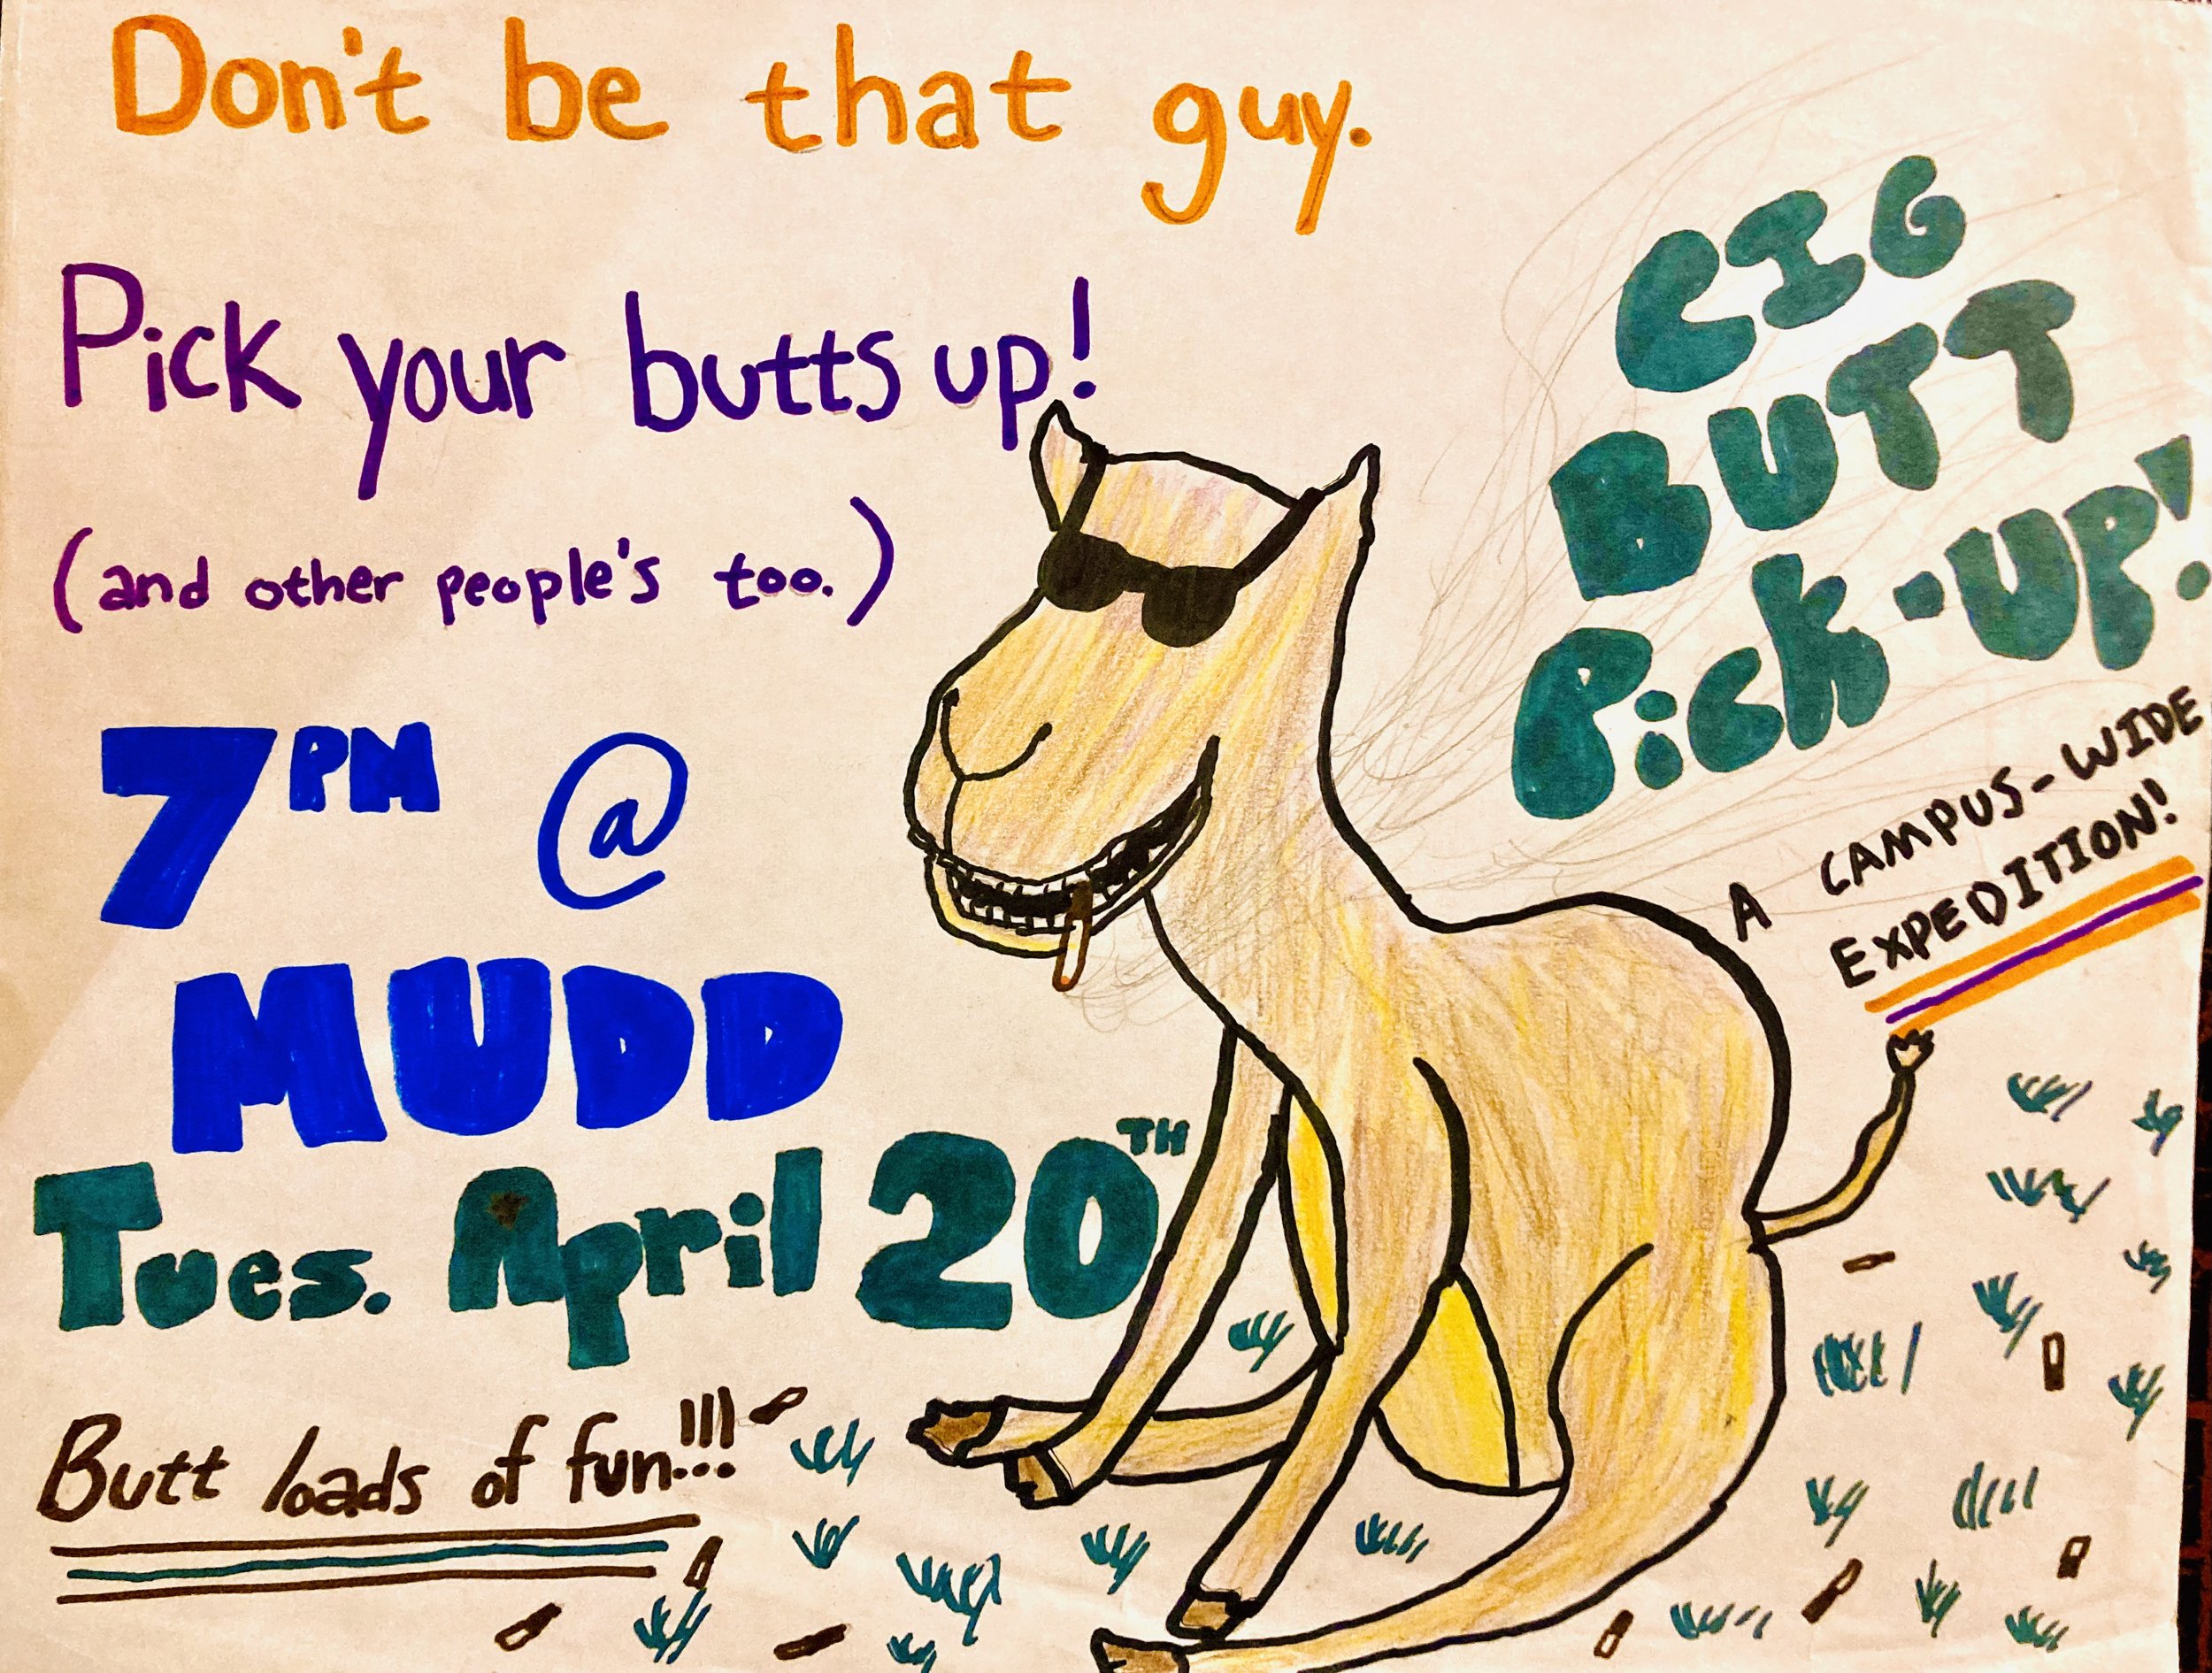 Don't be that guy.
Pick your butts up!
(and other people's too.)
7PM @
MUDD
Tues. April 20TH
Butt loads of fun!!!
CIG
BUTT
Pick-UP!
A CAMPUS-WIDE
EXPEDITION!